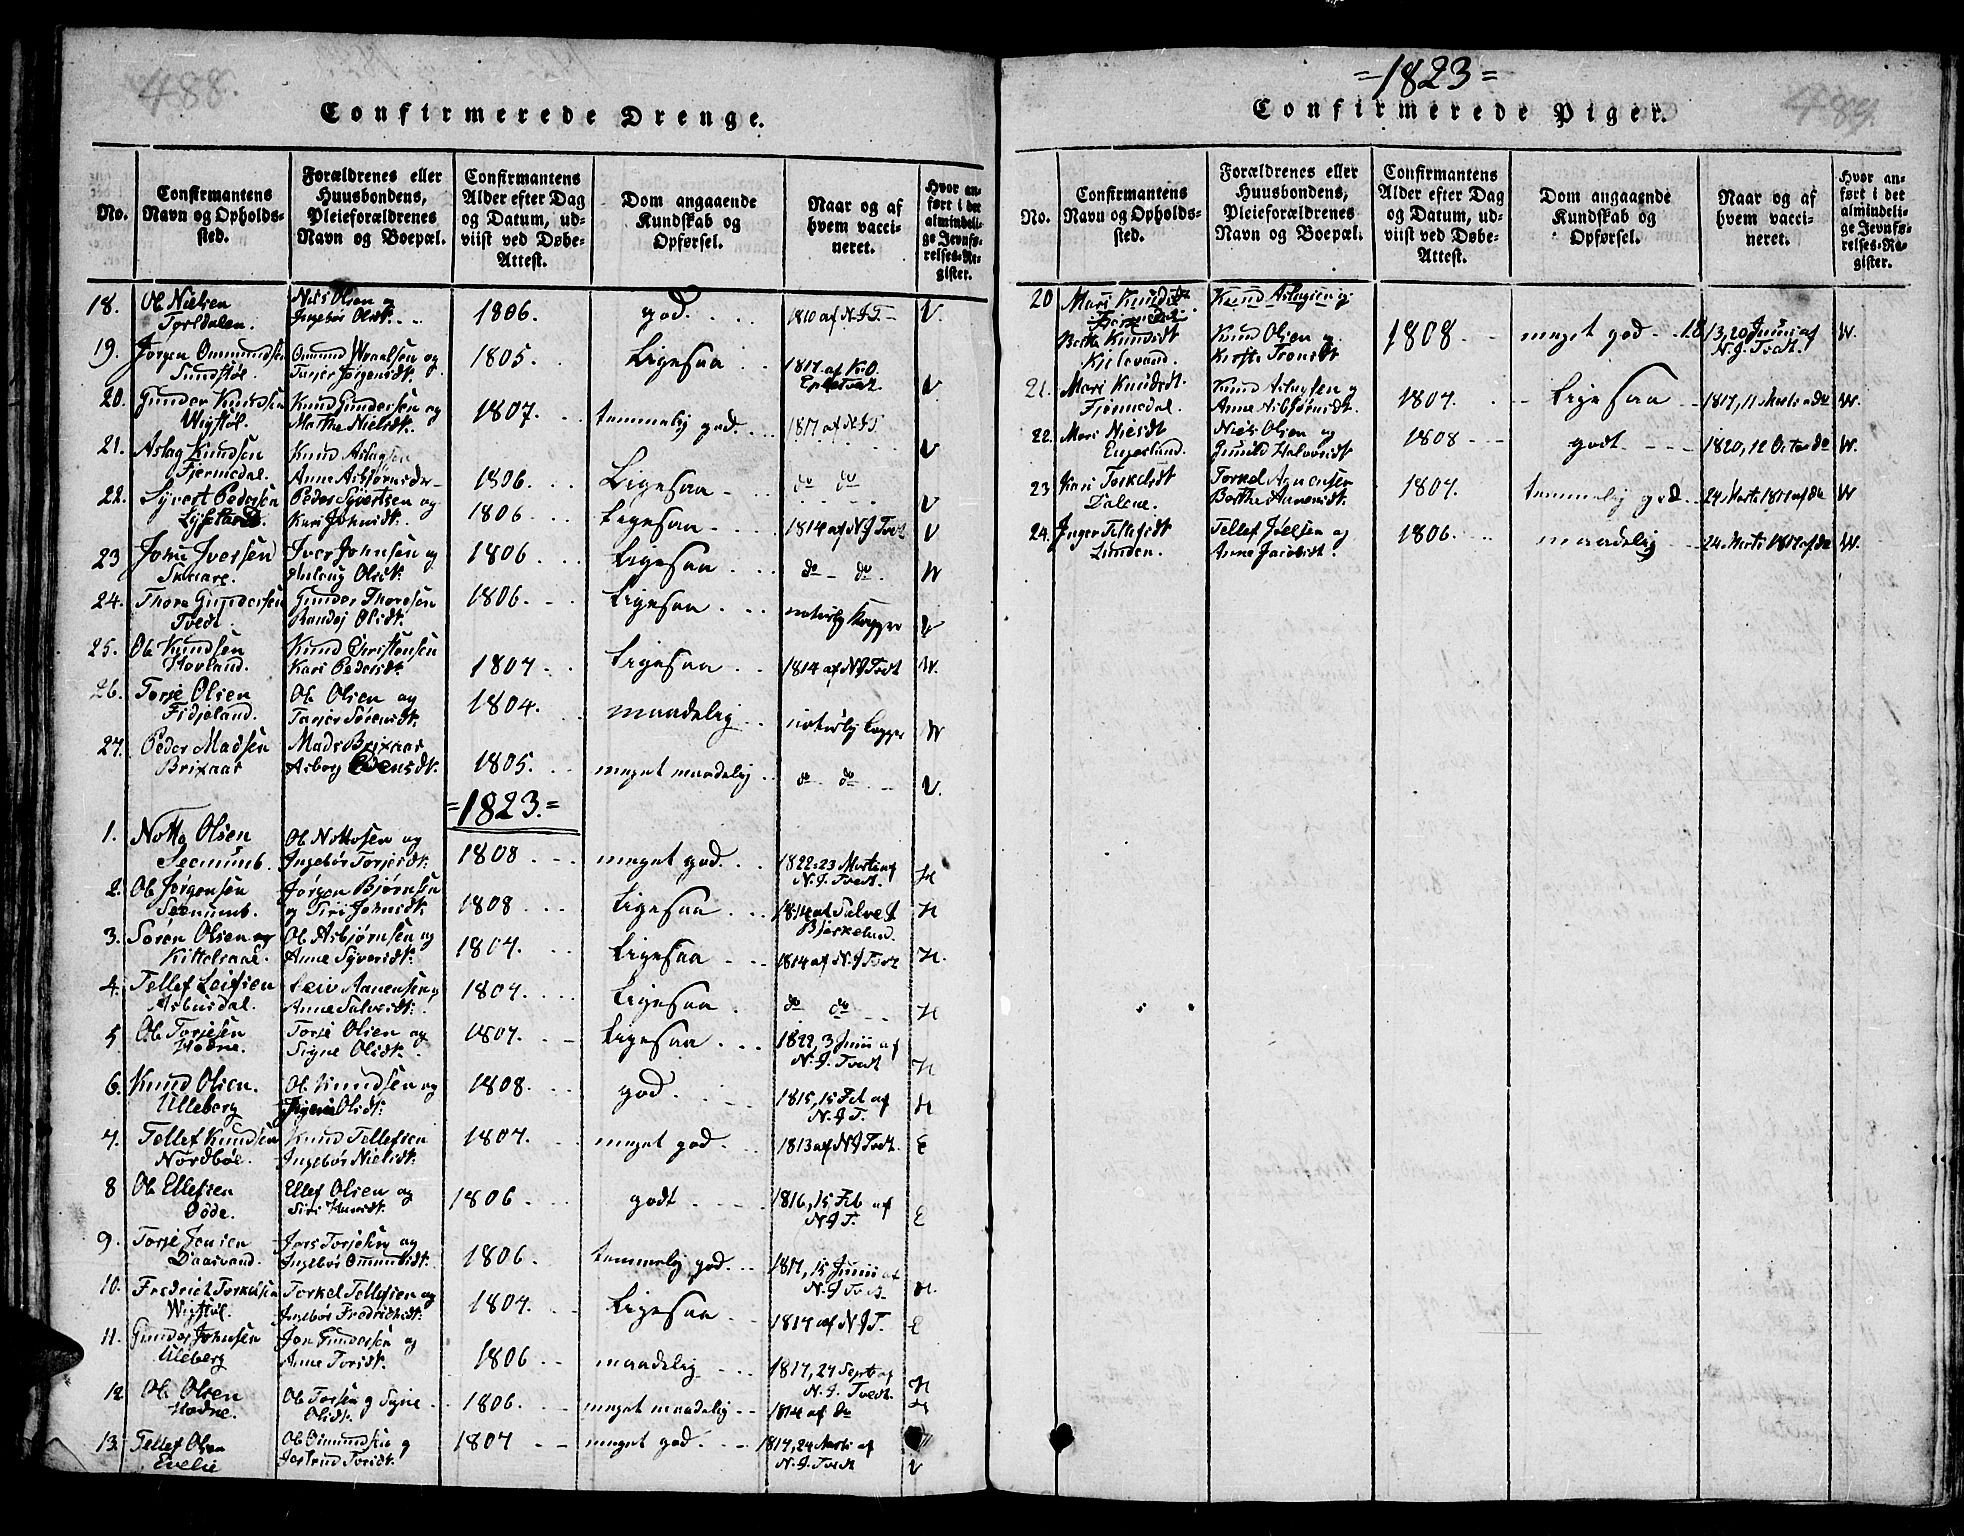 488.
Confirmerede Drenge.
No.
Confirmantens Navn og Opholdssted.
Forældrenes eller Huusbondens, Pleieforældrenes Navn og Boepæl.
Confirmantens Alder efter Dag og Datum, udviist ved Døbe-Attest.
Dom angaaende Kundskab og Opførsel.
Naar og af hvem vaccineret.
Hvor anført i det almindelige Jevnførelses-Register.
18. Ole Nielsen Niels Olsen og 1806. god. 1810 af N.J.T. V
Ingebør Olsdt.
19. Jørgen Ommundsen Omund Wraalsen og 1805. Ligesaa 1817 af K.O. V
Sundstøl. Tarjer Jørgensdt.
20. Gunder Knudsen Knud Gundersen og 1807. temmelig god. 1817 af N.J.T. V
Wigstøl. Marthe Nielsdt.
21. Aslag Knudsen Knud Aslagsen 1806. Ligesaa do do V
Fjermedal. Anne Asbjørnsdr
22. Syvert Pedersen Peder Syvertsen og 1806 Ligesaa 1814 af N.J. Tvedt V
Kari Johnsdt.
23 John Iversen Iver Johnsen og 1806 Ligesaa do do. W
Skaare. Olsdt.
24. Thore Gundersen Gunder Thoresen 1806. Ligesaa naturlig Kopper V
Tvede. Randej Olsdt.
25. Ole Knudsen Knud Christensen 1807. Ligesaa 1814 af N.J Tvedt W.
Hovland. Kari Pedersdt.
26. Torje Olsen Ole Olsen og 1804. maadelig naturlig Kopper W
Fidjeland. Tarjer Sørensdt.
27. Peder Madsen Mads Brixaas 1805. meget maadelig do do. V.
Brixaas Asborg Evensdt.
=1823.=
1. Notto Olsen Ole Nottosen og 1808 meget god. 1822, 23 Marti af N.J. Tvedt. H
Ingebør Torjesdt.
2. Ole Jørgensen Jørgen Bjørnsen 1808 Ligesaa 1814 af Salve J Bjerkelund. H
og Siri Johnsdt.
3. Søren Olsen Ole Asbjørnsen og 1807. Ligesaa 1814 af N.J Tvedt H.
Kittelsaae. Anne Syversdt.
4. Tellef Leifsen Leiv Aanensen og 1807. Ligesaa do do H
Asbiisdal. Anne Salvesdt.
5 Ole Torjesen Torje Olsen og 1807. Ligesaa 1822, 3 Junii af N.J. Tvedt H
Hodne. Signe Olsdt.
6. Knud Olsen. Ole Knudsen og 1808. god. 1815, 15 Feb af N.J.T. H
Ulleberg Olsdt.
7. Tellef Knudsen Knud Tellefsen 1807. meget god. 1813 af N.J Tvedt. E
Nordbøe. Ingebør Nielsdt.
8 Ole Ellefsen Ellef Olsen og 1806 godt 1816, 15 Feb af N.J.T. E
Siri
9. Torje Jensen Jens Torjesen og 1806. temmelig god. 1817, 15 Junii af N.J. Tvedt H.
Daasvand. Ingebør Omundsdt.
10. Fredrich Torkelsen Torkel Tellefsen og 1804. Ligesaa 1817 af N.J.T. E
Wigstøl. Ingebør Fredrichsdt.
11. Gunder Johnsen Jon Gundersen og 1806 maadelig 1817, 27 Septb af N.J. Tvedt. H
Uleberg Anne Torisdt.
12 Ole Olsen Ole Torsen og Sygne 1806. meget maadelig 1814 af do H
Hodne. Olsdt.
13. Tellef Olsen Ole Omundsen og 1807 meget god. 1817, 24 Marti af N.J. Tvedt V
Evelie Jortrud Torisdt.
=1823=
489.
Confirmerede Piger.
No.
Confirmantens Navn og Opholdssted.
Forældrenes eller Huusbondens, Pleieforældrenes Navn og Boepæl.
Confirmantens Alder efter Dag og Datum, udviist ved Døbe-Attest.
Dom angaaende Kundskab og Opførsel.
Naar og af hvem vaccineret.
Hvor anført i det almindelige Jevnførelses-Register.
20 Mari Knudsdt Knud Aslagsen og
Berthe Knudsdt Knud Olsen og 1808 meget god 1813, 20 Junii af N.J. Tvedt. W
Kjelevand. Kirsti Tronsdt
21. Mari Knudsdt. Knud Aslagsen og 1807. Ligesaa 1817, 11 Marti af do W.
Fjermedal. Anne Asbjørnsdt.
22. Mari Nielsdt Niels Olsen og 1808 godt 1820, 12 Octo do W.
Engesland. Gunild Halvorsdt
23 Kari Torkelsdt Torkel Aanensen 1807. temmelig god. 24 Marti 1817 af do W
Dalene. Berthe Aanensdt.
24. Inger Tellefsdt Tellef Joelsen og 1806. maadelig 24 Marti 1817 af do W.
Linnden. Anne Jacobsdt.